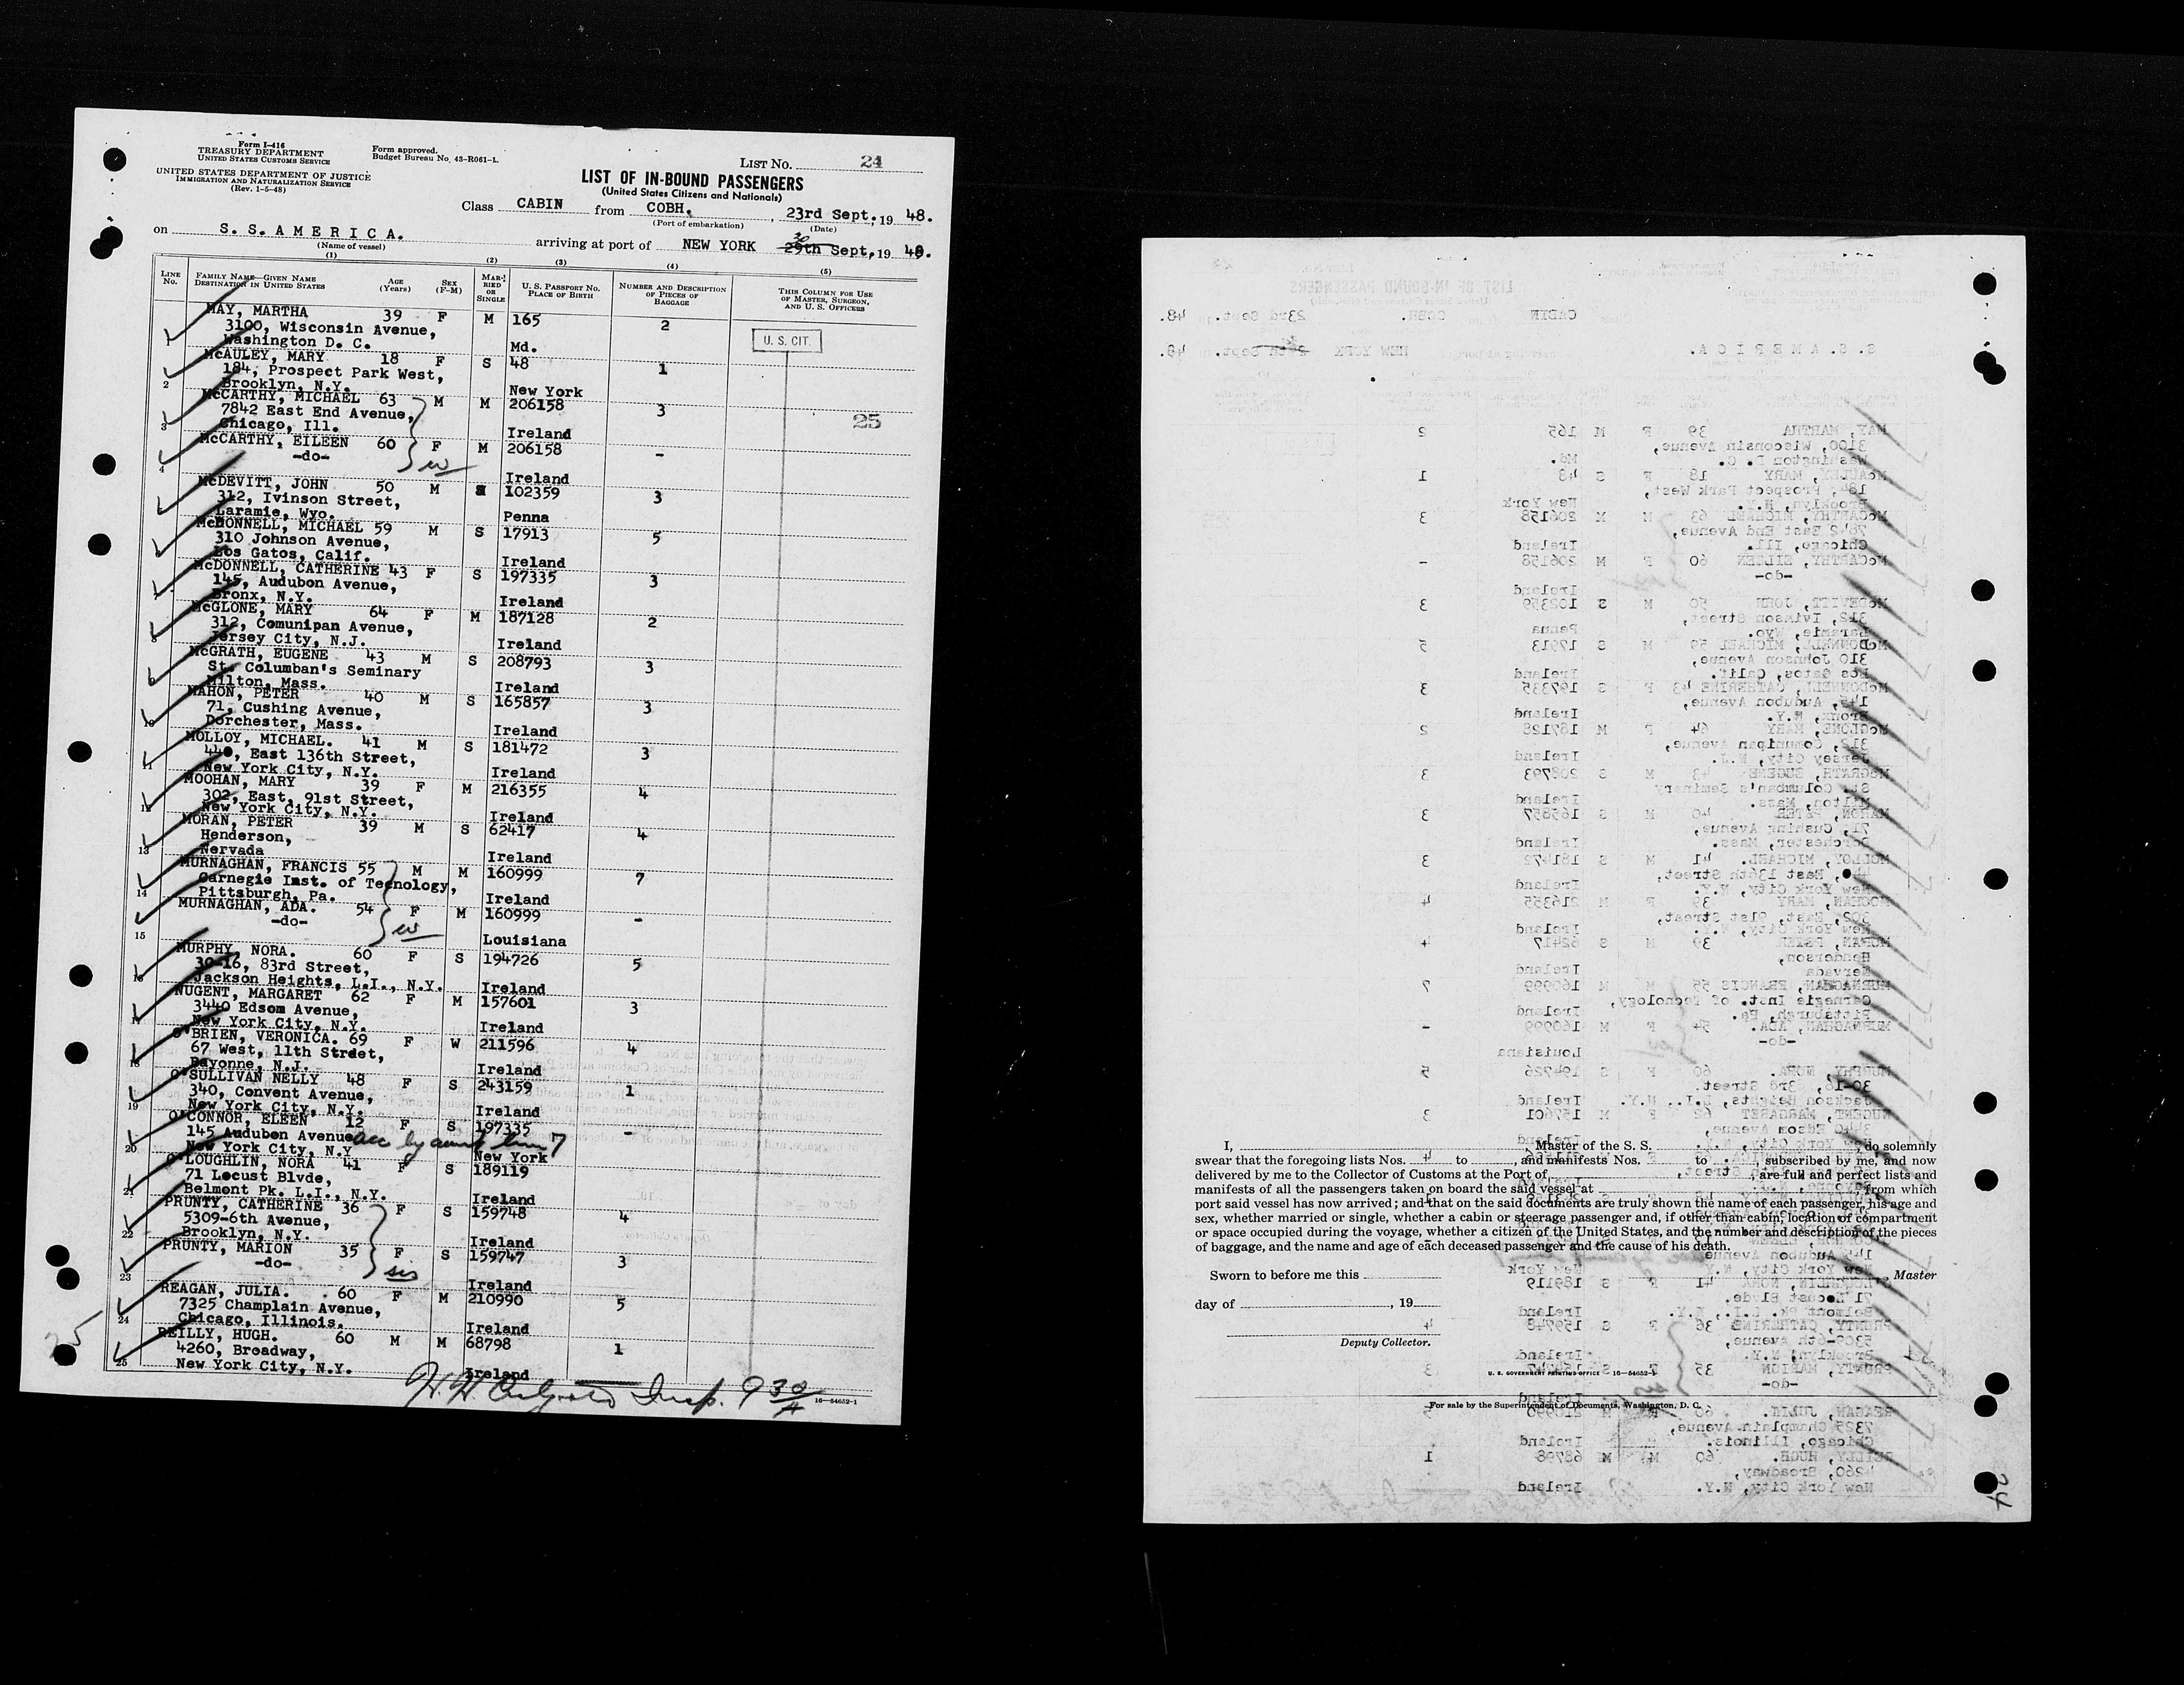 Form I-416
TREASURY DEPARTMENT
UNITED STATES CUSTOMS SERVICE
Form approved.
Budget Bureau No. 43-R061-1.
LIST No. 24
UNITED STATES DEPARTMENT OF JUSTICE
IMMIGRATION AND NATURALIZATION SERVICE
(Rev. 1-5-48)
LIST OF IN-BOUND PASSENGERS
(United States Citizens and Nationals)
Class CABIN from COBH. , 23rd Sept., 19 48.
(Port of embarkation) (Date)
on S. S. A M E R I C A. arriving at port of NEW YORK 30 29th Sept, 19 48.
(Name of vessel)
(1) (2) (3) (4) (5)
LINE No. FAMILY NAME—GIVEN NAME DESTINATION IN UNITED STATES AGE (Years) SEX (F-M) MARRIED OR SINGLE U. S. PASSPORT No. PLACE OF BIRTH NUMBER AND DESCRIPTION OF PIECES OF BAGGAGE THIS COLUMN FOR USE OF MASTER, SURGEON, AND U. S. OFFICERS
MAY, MARTHA 39 F M 165 2
3100, Wisconsin Avenue,
1 Washington D. C. Md.
U. S. CIT.
McAULEY, MARY 18 F S 48 1
184, Prospect Park West,
2 Brooklyn, N.Y. New York
McCARTHY, MICHAEL 63 M M 206158 3
7842 East End Avenue, 25
3 Chicago, Ill. Ireland
McCARTHY, EILEEN 60 F M 206158 -
-do- w
4 Ireland
McDEVITT, JOHN 50 M S 102359 3
312, Ivinson Street,
Laramie, Wyo. Penna
McDONNELL, MICHAEL 59 M S 17913 5
310 Johnson Avenue,
Los Gatos, Calif. Ireland
McDONNELL, CATHERINE 43 F S 197335 3
145, Audubon Avenue,
Bronx, N.Y. Ireland
McGLONE, MARY 64 F M 187128 2
312, Comunipan Avenue,
8 Jersey City, N.J. Ireland
McGRATH, EUGENE 43 M S 208793 3
St. Columban's Seminary
9 Milton, Mass. Ireland
MAHON, PETER 40 M S 165857 3
71, Cushing Avenue,
10 Dorchester, Mass. Ireland
MOLLOY, MICHAEL. 41 M S 181472 3
440, East 136th Street,
11 New York City, N.Y. Ireland
MOOHAN, MARY 39 F M 216355 4
302, East, 91st Street,
12 New York City, N.Y. Ireland
MORAN, PETER 39 M S 62417 4
Henderson,
13 Nervada Ireland
MURNAGHAN, FRANCIS 55 M M 160999 7
Carnegie Inst. of Tecnology,
14 Pittsburgh, Pa. Ireland
MURNAGHAN, ADA. 54 F M 160999 -
-do- w
15 Louisiana
MURPHY, NORA. 60 F S 194726 5
30-16, 83rd Street,
16 Jackson Heights, L.I., N.Y. Ireland
NUGENT, MARGARET 62 F M 157601 3
3440 Edsom Avenue,
17 New York City, N.Y. Ireland
O'BRIEN, VERONICA. 69 F W 211596 4
67 West, 11th Street,
18 Bayonne, N.J. Ireland
O'SULLIVAN NELLY 48 F S 243159 1
340, Convent Avenue,
19 New York City, N.Y. Ireland
O'CONNOR, ELEEN 12 F S 197335 -
145 Audubon Avenue acc by aunt line 7
20 New York City, N.Y New York
O'LOUGHLIN, NORA 41 F S 189119
71 Locust Blvde,
21 Belmont Pk. L.I., N.Y. Ireland
PRUNTY, CATHERINE 36 F S 159748 4
5309-6th Avenue,
22 Brooklyn, N.Y. Ireland
PRUNTY, MARION 35 F S 159747 3
-do- sis
23 Ireland
REAGAN, JULIA. 60 F M 210990 5
7325 Champlain Avenue,
24 Chicago, Illinois. Ireland
REILLY, HUGH. 60 M M 68798 1
4260, Broadway,
25 New York City, N.Y. Ireland
25
Insp. 9 30/A
16—54652-1
I, Master of the S. S. do solemnly
swear that the foregoing lists Nos. to , and manifests Nos. to , subscribed by me, and now
delivered by me to the Collector of Customs at the Port of , are full and perfect lists and
manifests of all the passengers taken on board the said vessel at , from which
port said vessel has now arrived; and that on the said documents are truly shown the name of each passenger, his age and
sex, whether married or single, whether a cabin or steerage passenger and, if other than cabin, location of compartment
or space occupied during the voyage, whether a citizen of the United States, and the number and description of the pieces
of baggage, and the name and age of each deceased passenger and the cause of his death.
Sworn to before me this
Master
day of , 19
Deputy Collector.
U. S. GOVERNMENT PRINTING OFFICE 16—54652-1
For sale by the Superintendent of Documents, Washington, D. C.
24